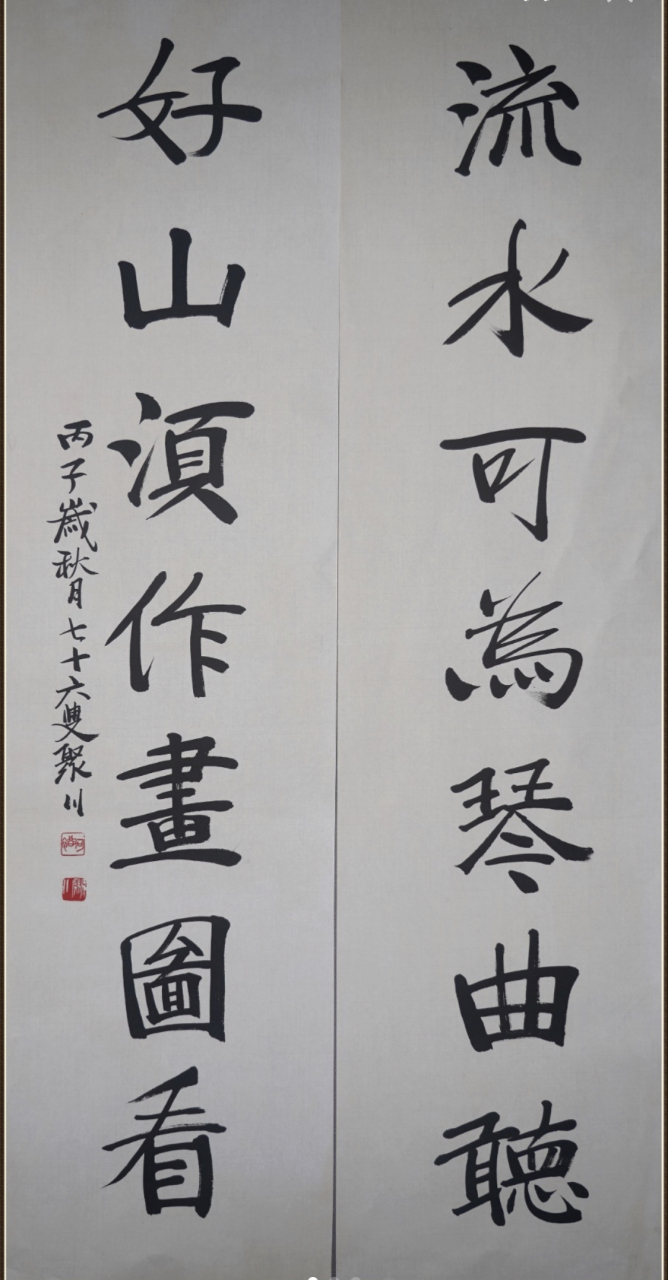 流水可為琴曲聽
好山須作畫圖看
丙子歲秋月七十六叟聚川